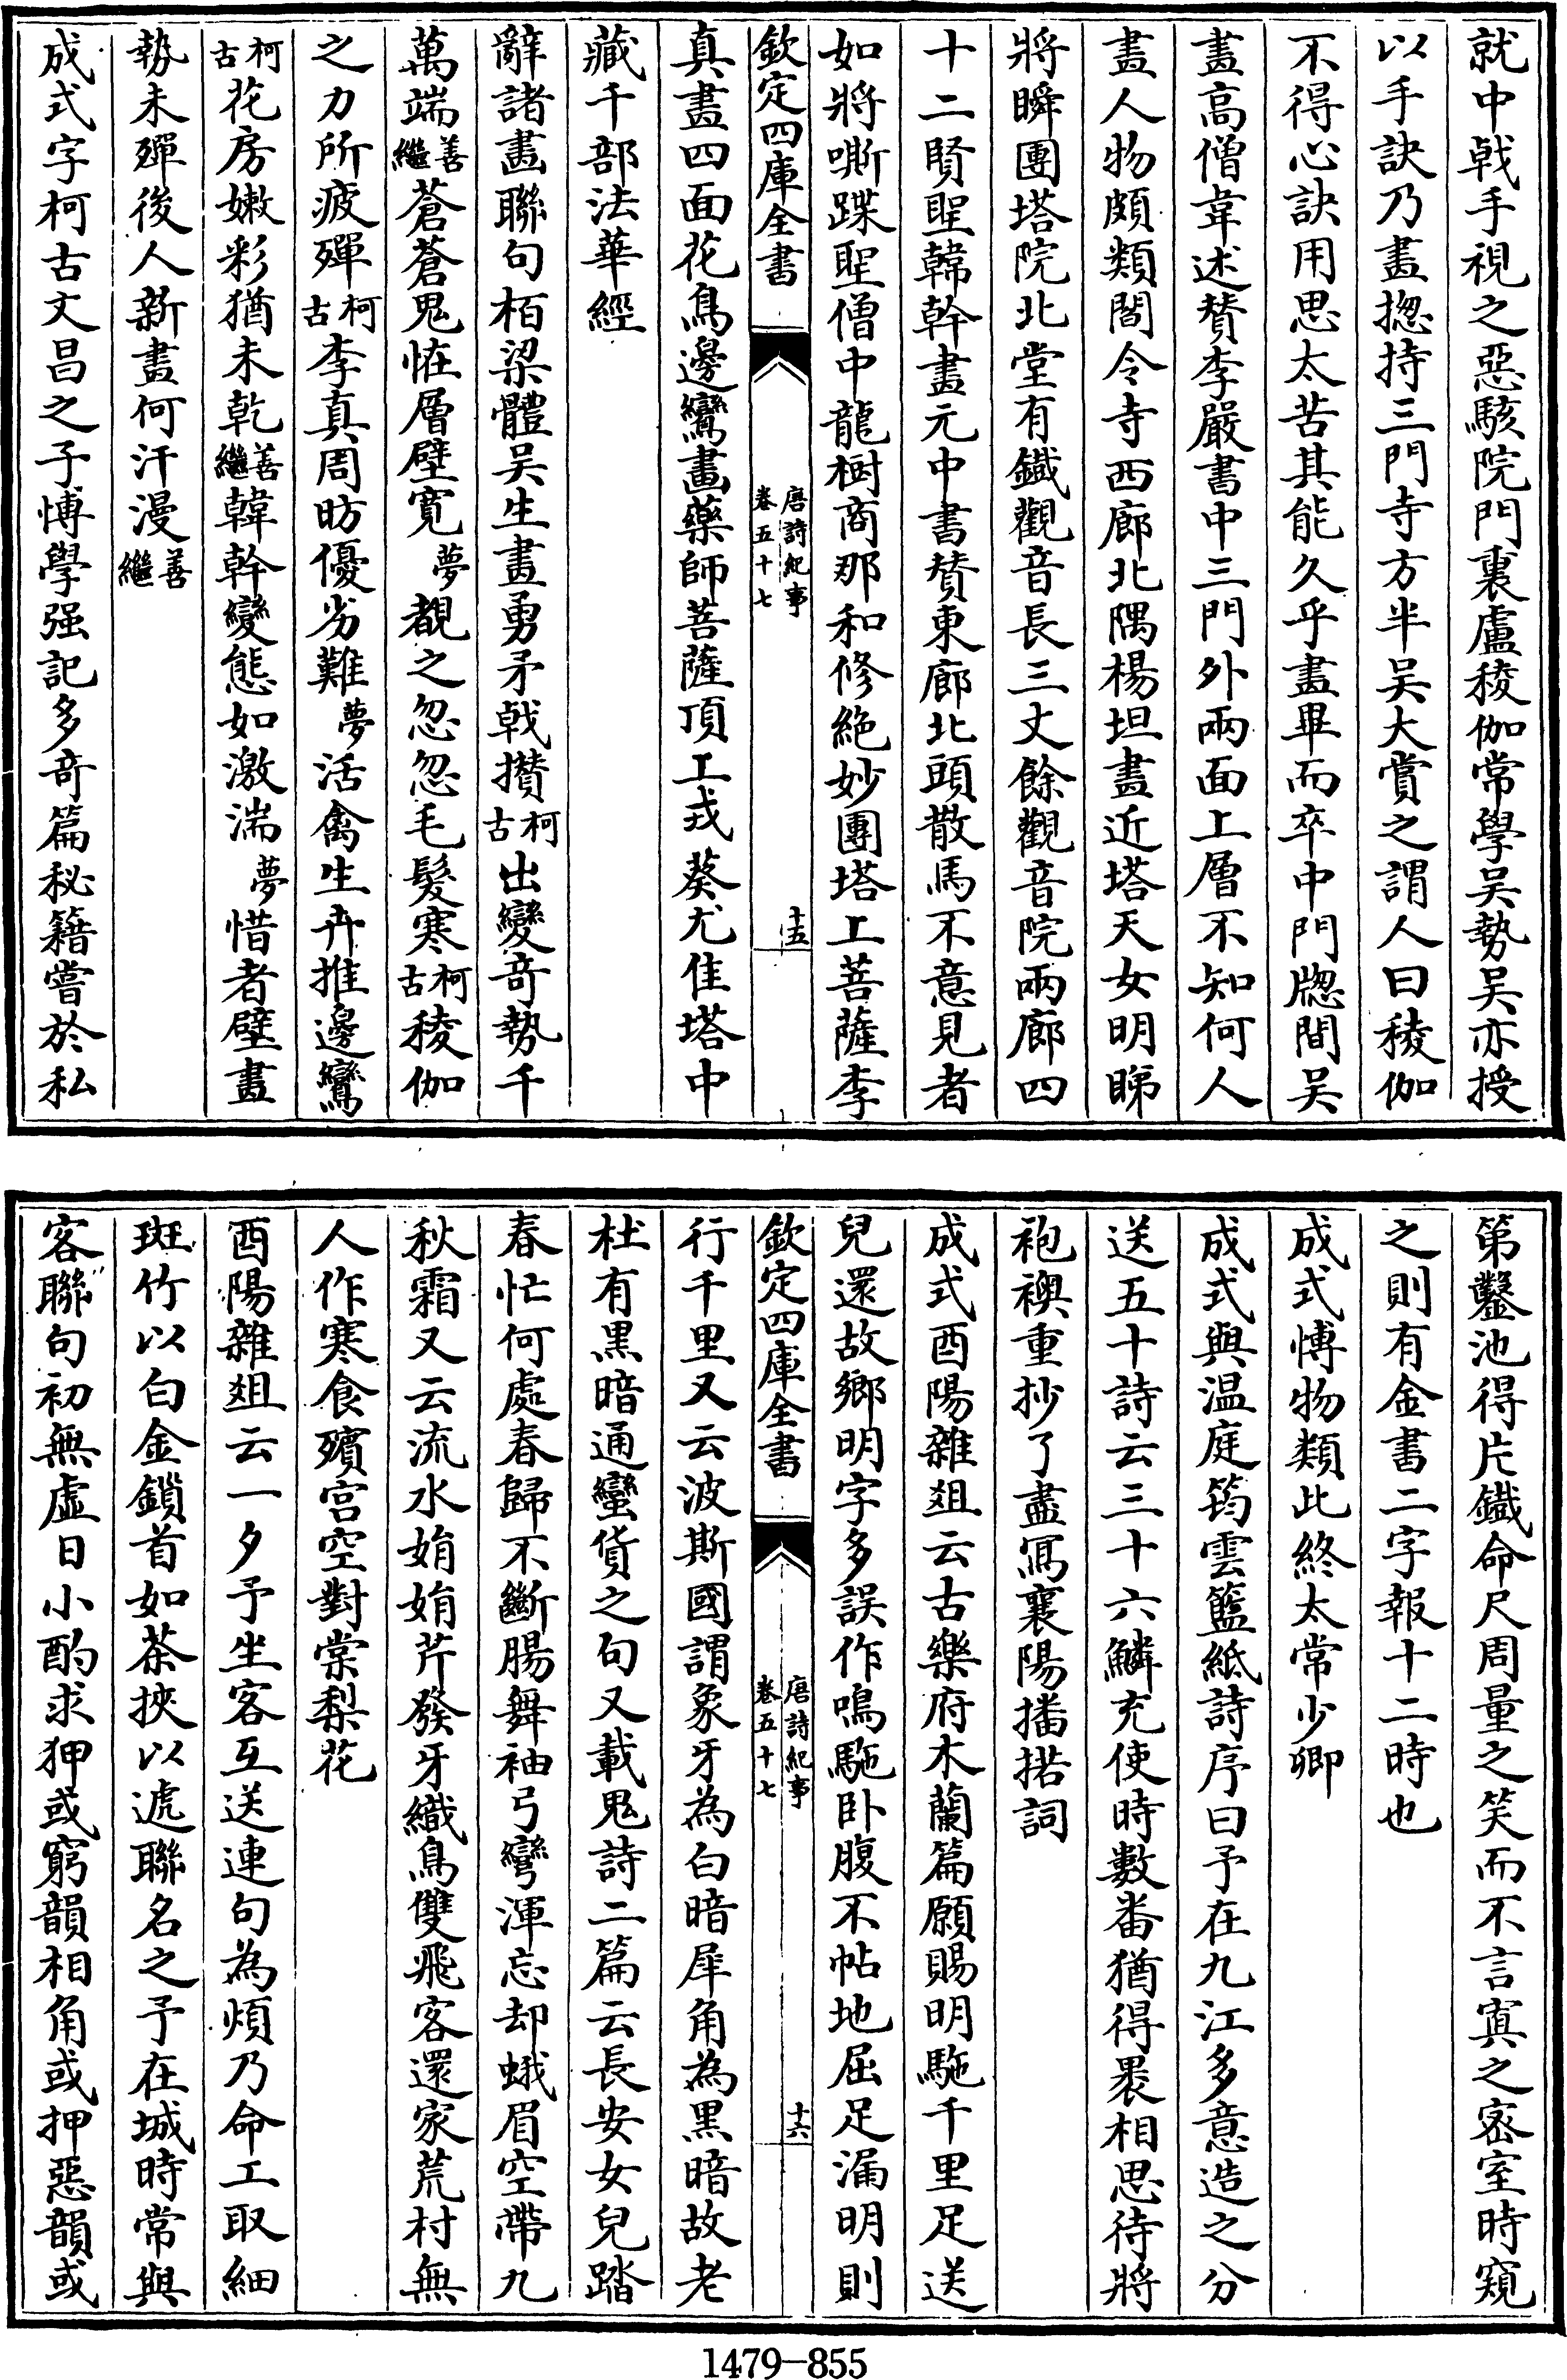 就中戟手視之惡駭院門裏盧稜伽常學吴勢吴亦授
以手訣乃畫揔持三門寺方半吴大賞之謂人曰稜伽
不得心訣用思太苦其能久乎畫畢而卒中門牎間吴
畫高僧韋述贊李嚴書中三門外兩面上層不知何人
畫人物頗類閻令寺西廊北隅楊坦畫近塔天女明睇
將瞬團塔院北堂有鐵觀音長三丈餘觀音院兩廊四
十二賢聖韓幹畫元中書贊東廊北頭散馬不意見者
如將嘶蹀聖僧中龍樹商那和修絶妙團塔上菩薩李
欽定四庫全書
唐詩紀事
卷五十七
十五
真畫四面花鳥邊鸞畫藥師菩薩頂上戎葵尤佳塔中
藏千部法華經
辭諸畫聯句栢梁體吴生畫勇矛戟攢柯古出變奇勢千
萬端善繼蒼蒼鬼恠層壁寛夢覩之忽忽毛髮寒柯古稜伽
之力所疲殫柯古李真周昉優劣難夢活禽生卉推邊鸞
柯古花房嫩彩猶未乾善繼韓幹變態如激湍夢惜者壁畫
勢未殫後人新畫何汗漫善繼
成式字柯古文昌之子博學强記多奇篇秘籍嘗於私
第鑿池得片鐵命尺周量之笑而不言寘之密室時窺
之則有金書二字報十二時也
成式博物類此終太常少卿
成式與温庭筠雲籃紙詩序曰予在九江多意造之分
送五十詩云三十六鱗充使時數番猶得裹相思待將
袍襖重抄了盡寫襄陽播掿詞
成式酉陽雜爼云古樂府木蘭篇願賜明駞千里足送
兒還故鄉明字多誤作鳴駞卧腹不帖地屈足漏明則
欽定四庫全書
唐詩紀事
卷五十七
十六
行千里又云波斯國謂象牙為白暗犀角為黒暗故老
杜有黒暗通蠻貨之句又載鬼詩二篇云長安女兒踏
春忙何處春歸不斷腸舞袖弓彎渾忘却蛾眉空帶九
秋霜又云流水娟娟芹發牙織鳥雙飛客還家荒村無
人作寒食殯宫空對棠梨花
酉陽雜爼云一夕予坐客互送連句為煩乃命工取細
斑竹以白金鎖首如茶挾以遞聯名之予在城時常與
客聯句初無虚日小酌求狎或窮韻相角或押惡韻或
1479—855